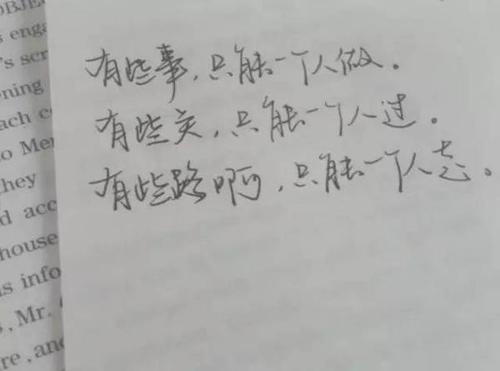 OBJE
s enga
's scr
ening
ach c
o Mer
hey
d acc
house
s info
, Mr.
re, and
有些事,只能一个人做。
有些关,只能一个人过。
有些路啊,只能一个人走。